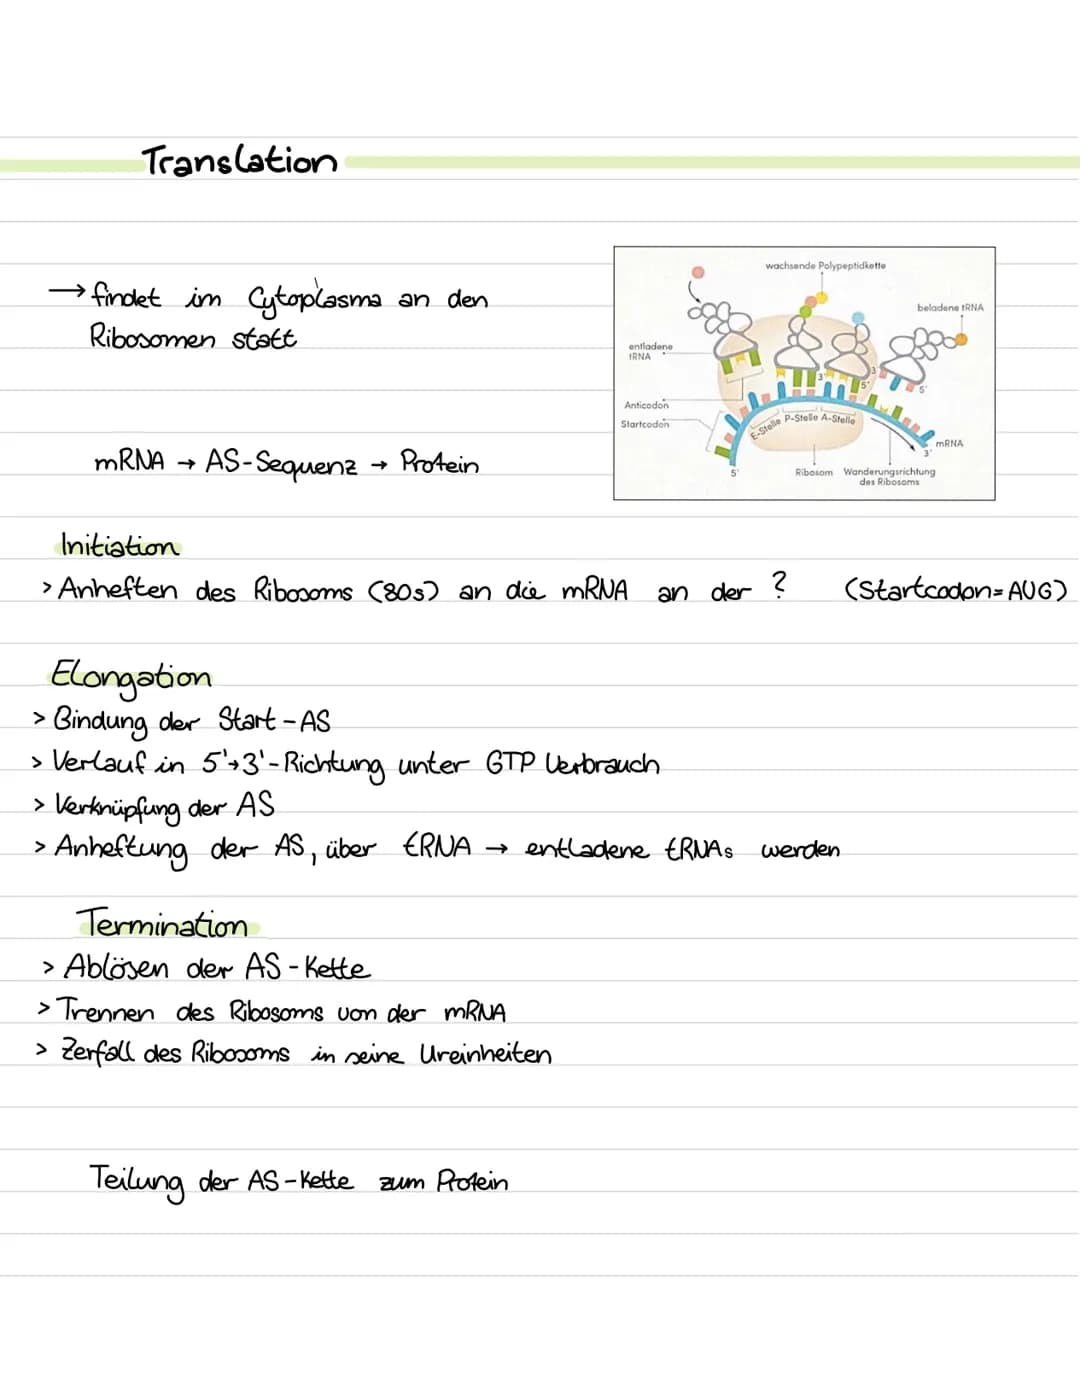 Translation
→ findet im Cytoplasma an den
Ribosomen statt
mRNA → AS-Sequenz → Protein
wachsende Polypeptidkette
beladene tRNA
entladene
tRNA
Anticodon
Startcodon
E-Stelle P-Stelle A-Stelle
3'
5'
3'
5'
mRNA
3'
5'
Ribosom Wanderungsrichtung
des Ribosoms
Initiation
> Anheften des Ribosoms (80s) an die mRNA an der ? (Startcodon=AUG)
Elongation
> Bindung der Start-AS
> Verlauf in 5'→3'-Richtung unter GTP Verbrauch
> Verknüpfung der AS
> Anheftung der AS, über tRNA → entladene tRNAs werden
Termination
> Ablösen der AS-Kette
> Trennen des Ribosoms von der mRNA
> Zerfall des Ribosoms in seine Ureinheiten
Teilung der AS-Kette zum Protein